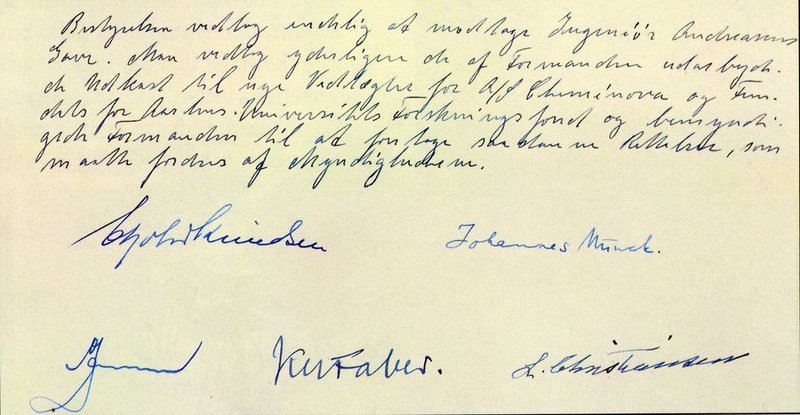 Bestyrelsen vedtog endelig at modtage Ingeniör Andreasens
Gave. Man vedtog yderligere de af Formanden udarbejde-
de Udkast til nye Vedtægter for A/S Cheminova og Fun-
dats for Aarhus Universitets Forskningsfond og bemyndi-
gede Formanden til at foretage saadanne Rettelser, som
maatte fordres af Myndighederne.
Johannes Munck.
Knud Faber.
L. Christiansen